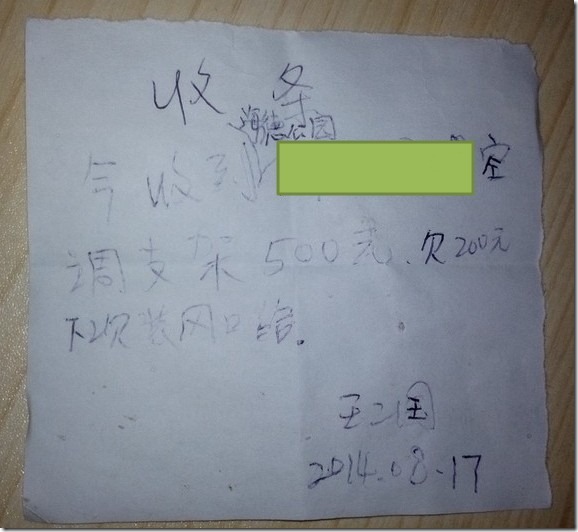 收 条
海德公园
今收到 空
调支架500元、欠200元
下次装风口给。
王二国
2014.08.17